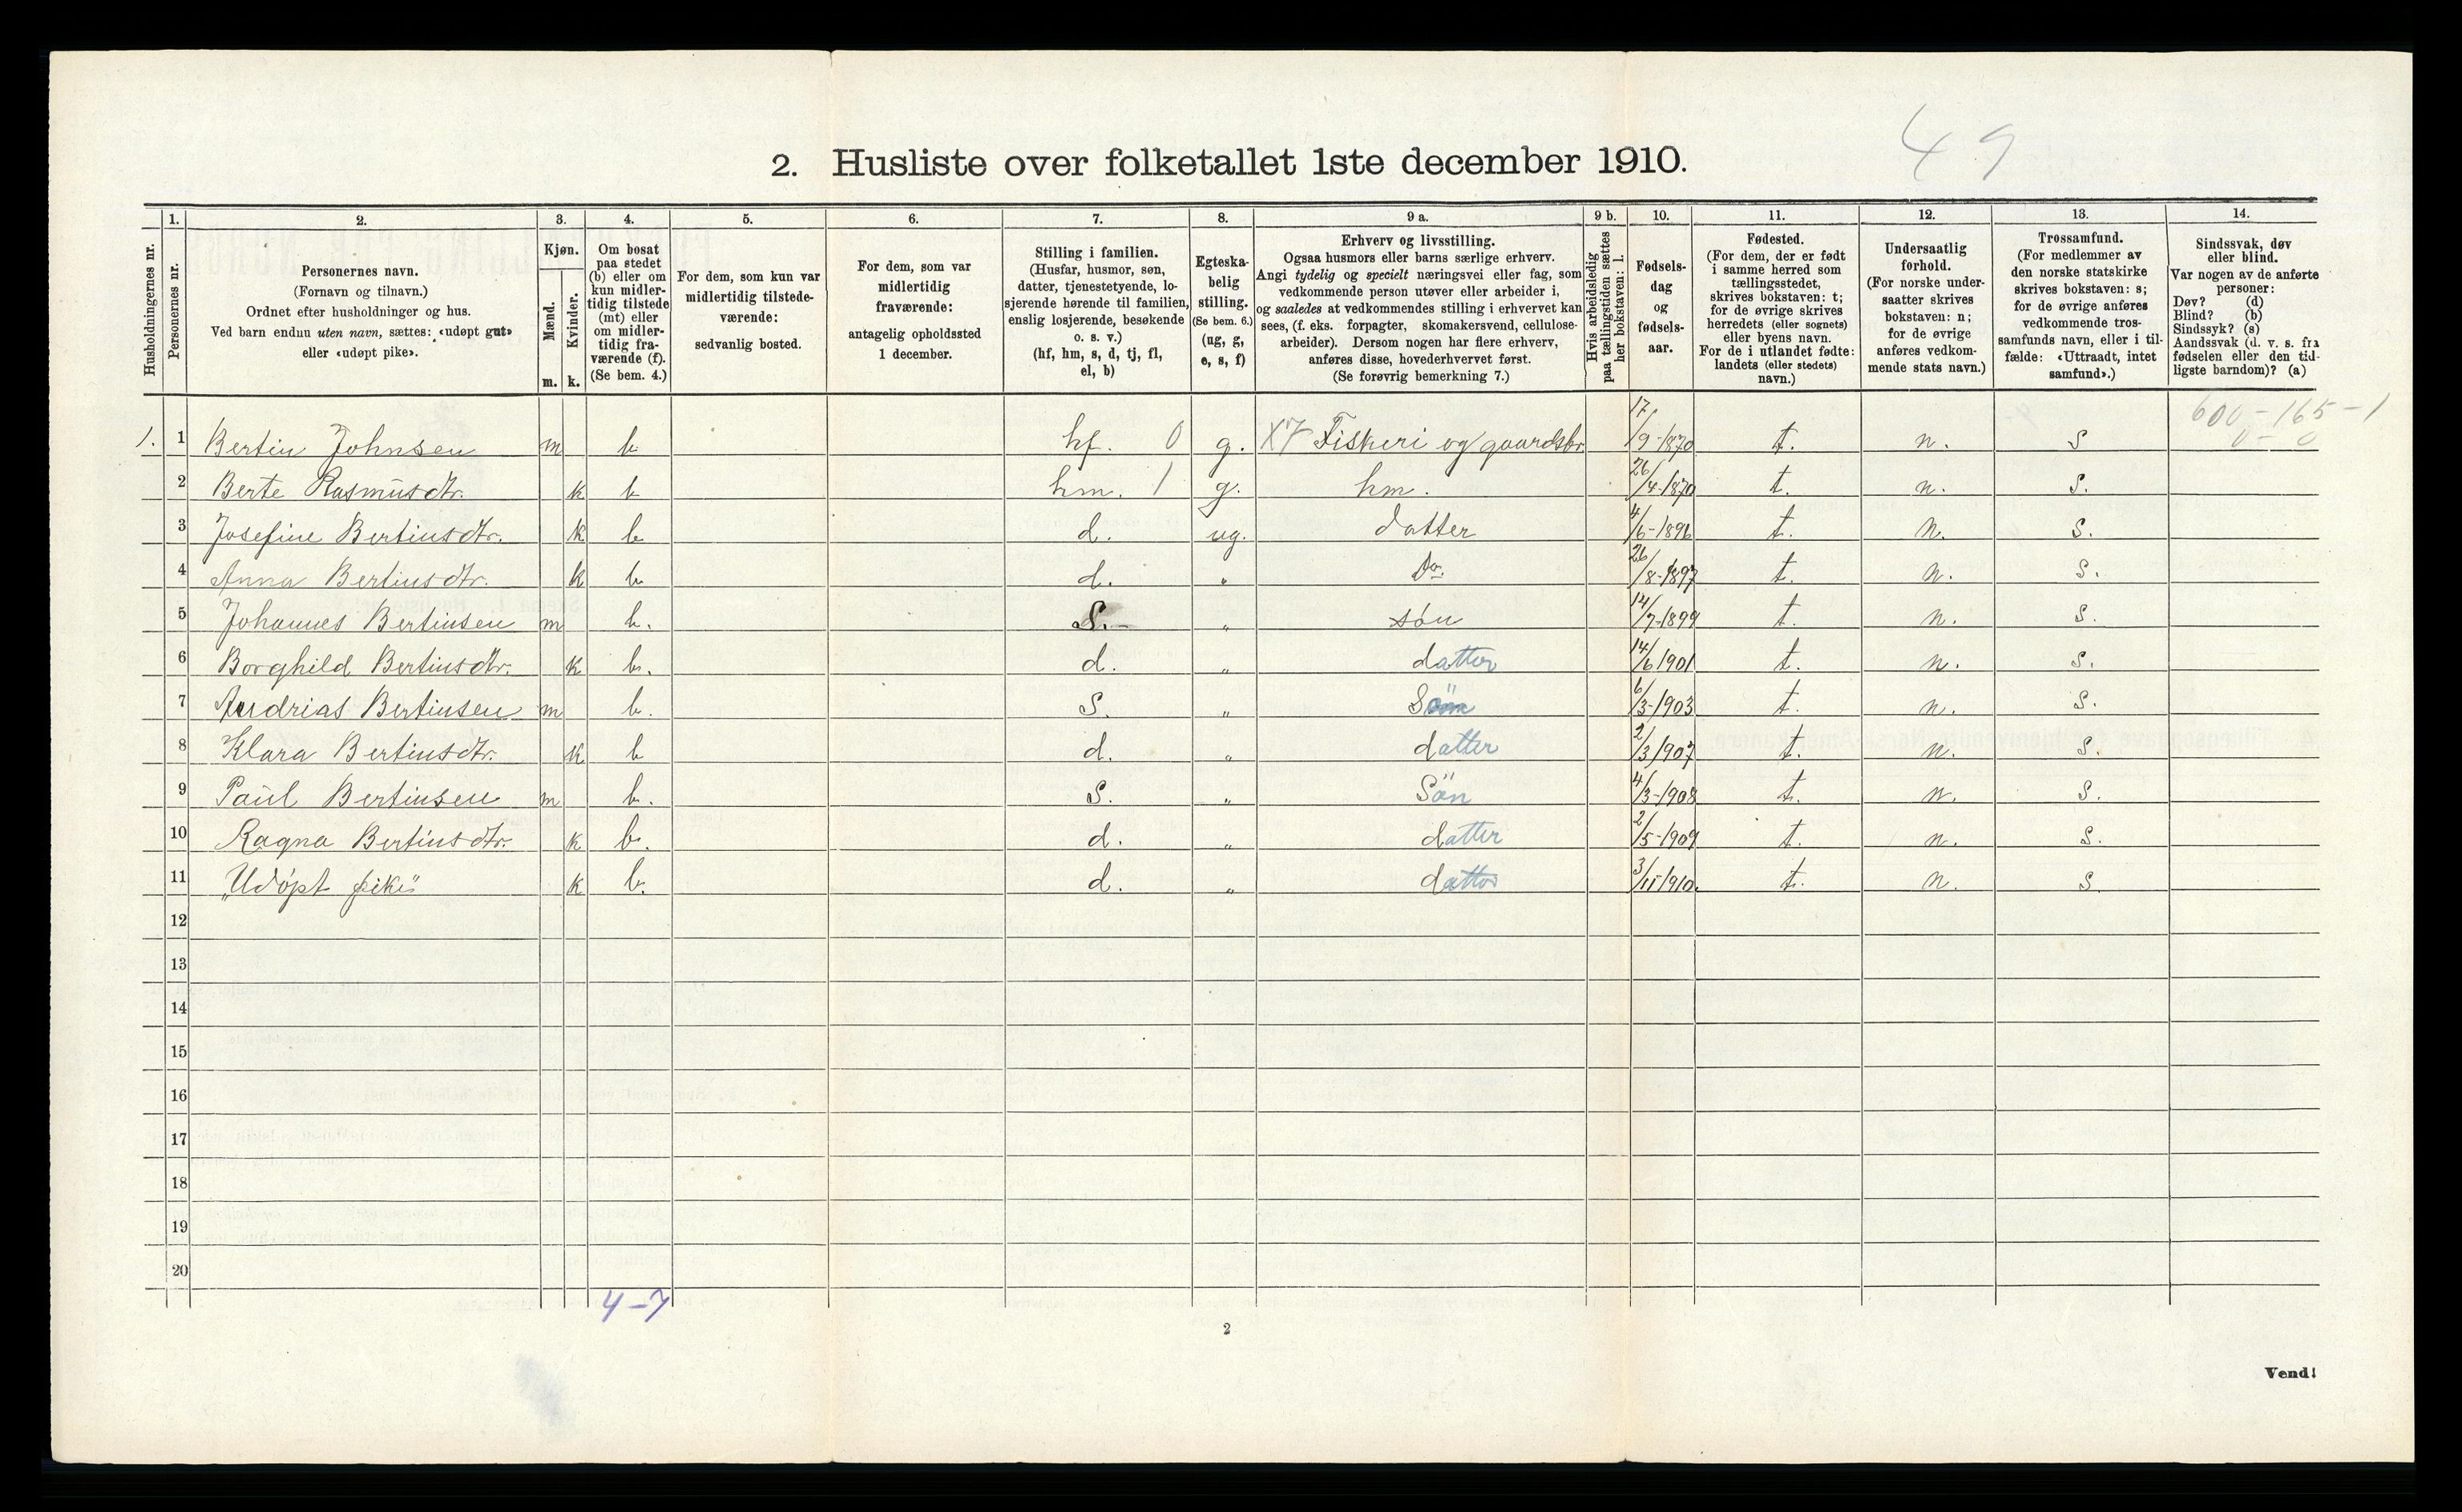 49
2. Husliste over folketallet 1ste december 1910.
Husholdningernes nr.
1. Personernes nr.
2. Personernes navn.
(Fornavn og tilnavn.)
Ordnet efter husholdninger og hus.
Ved barn endnu uten navn, sættes: «udøpt gut»
eller «udøpt pike».
3. Kjøn.
Mænd. m.
Kvinder. k.
4. Om bosat
paa stedet
(b) eller om
kun midler-
tidig tilstede
(mt) eller
om midler-
tidig fra-
værende (f).
(Se bem. 4.)
5. For dem, som kun var
midlertidig tilstede-
værende:
sedvanlig bosted.
6. For dem, som var
midlertidig
fraværende:
antagelig opholdssted
1 december.
7. Stilling i familien.
(Husfar, husmor, søn,
datter, tjenestetyende, lo-
sjerende hørende til familien,
enslig losjerende, besøkende
o. s. v.)
(hf, hm, s, d, tj, fl,
el, b)
8. Egteska-
belig
stilling.
(Se bem. 6.)
(ug, g,
e, s, f)
9 a. Erhverv og livsstilling.
Ogsaa husmors eller barns særlige erhverv.
Angi tydelig og specielt næringsvei eller fag, som
vedkommende person utøver eller arbeider i,
og saaledes at vedkommendes stilling i erhvervet kan
sees, (f. eks. forpagter, skomakersvend, cellulose-
arbeider). Dersom nogen har flere erhverv,
anføres disse, hovederhvervet først.
(Se forøvrig bemerkning 7.)
9 b. Hvis arbeidsledig
paa tællingstiden sættes
her bokstaven: l.
10. Fødsels-
dag
og
fødsels-
aar.
11. Fødested.
(For dem, der er født
i samme herred som
tællingsstedet,
skrives bokstaven: t;
for de øvrige skrives
herredets (eller sognets)
eller byens navn.
For de i utlandet fødte:
landets (eller stedets)
navn.)
12. Undersaatlig
forhold.
(For norske under-
saatter skrives
bokstaven: n;
for de øvrige
anføres vedkom-
mende stats navn.)
13. Trossamfund.
(For medlemmer av
den norske statskirke
skrives bokstaven: s;
for de øvrige anføres
vedkommende tros-
samfunds navn, eller i til-
fælde: «Uttraadt, intet
samfund».)
14. Sindssvak, døv
eller blind.
Var nogen av de anførte
personer:
Døv? (d)
Blind? (b)
Sindssyk? (s)
Aandssvak (d. v. s. fra
fødselen eller den tid-
ligste barndom)? (a)
600-165-1
0-0
1. 1 Bertin Johnsen m b hf. 0 g. X7 Fiskeri og gaardsbr. 17/9-1870 t. n. S
2 Berte Rasmusdtr. k b hm. 1 g. hm. 26/4-1870 t. n. S.
3 Josefine Bertinsdtr. k b d. ug. datter 4/6-1896 t. n. S.
4 Anna Bertinsdtr. k b d. " Do. 26/8-1897 t. n. S.
5 Johannes Bertinsen m b. S. " søn 14/7-1899 t. n. S.
6 Borghild Bertinsdtr. k b. d. " datter 14/6 1901 t. n. S.
7 Andrias Bertinsen m b. S. " Sön 6/3-1903 t. n. S.
8 Klara Bertinsdtr. k b d. " datter 2/3 1907 t. n. S.
9 Paul Bertinsen m b. S. " Sön 4/3-1908 t. n. S.
10 Ragna Bertinsdtr. k b. d. " datter 2/5-1909 t. n. S.
11 "Udøpt pike" k b. d. " datter 3/11 1910. t. n. S.
12
13
14
15
16
17
18
19
20
4-7
2
Vend!